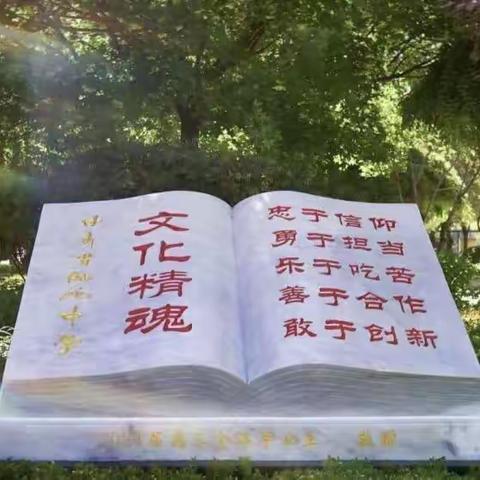 甘肃省临洮中学
文化精魂
忠于信仰
勇于担当
乐于吃苦
善于合作
敢于创新
届高三全体毕业生 敬赠